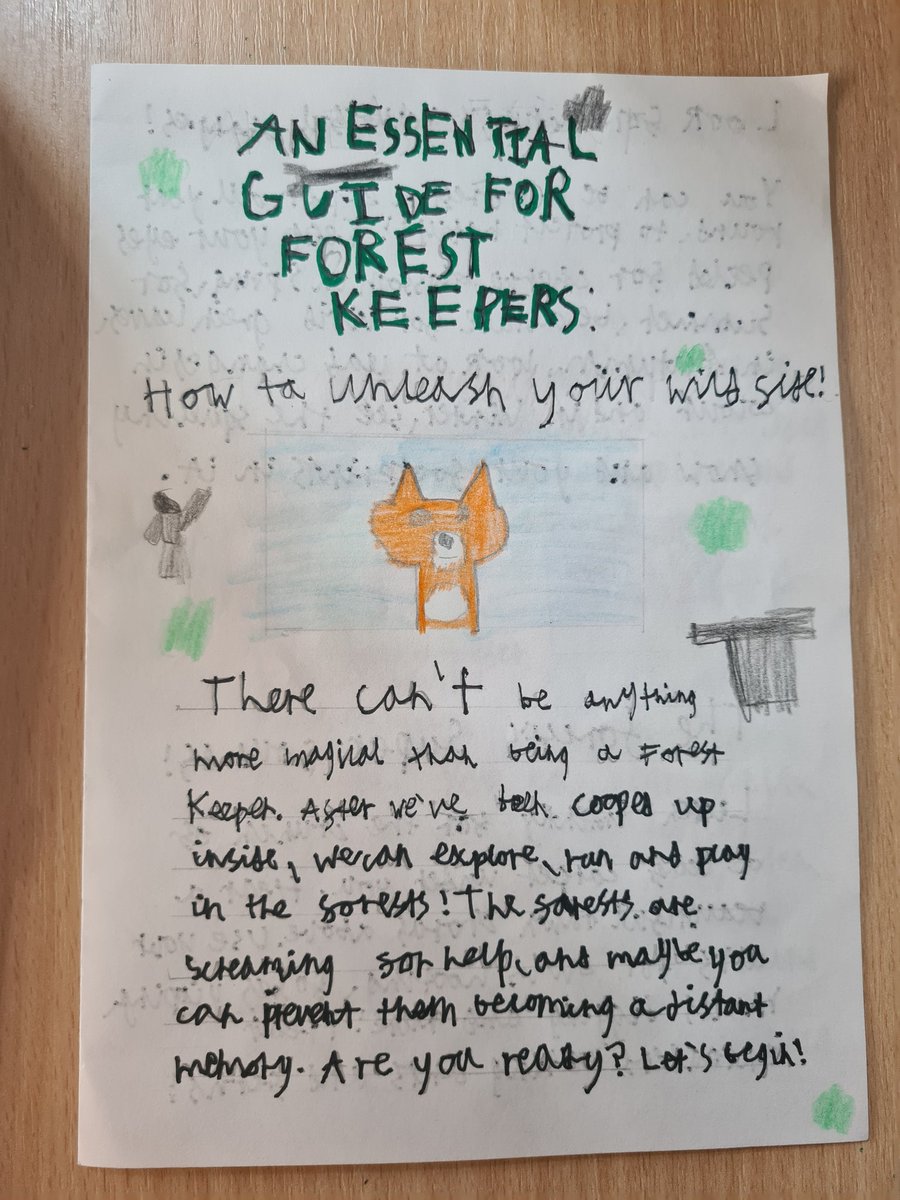 AN ESSENTIAL
GUIDE FOR
FOREST
KEEPERS:
How to unleash your wild side!
There can't be anything
more magical than being a Forest
Keeper. After we've been cooped up
inside, we can explore, run and play
in the forests! The forests are
screaming for help, and maybe you
can prevent them becoming a distant
memory. Are you ready? Let's begin!